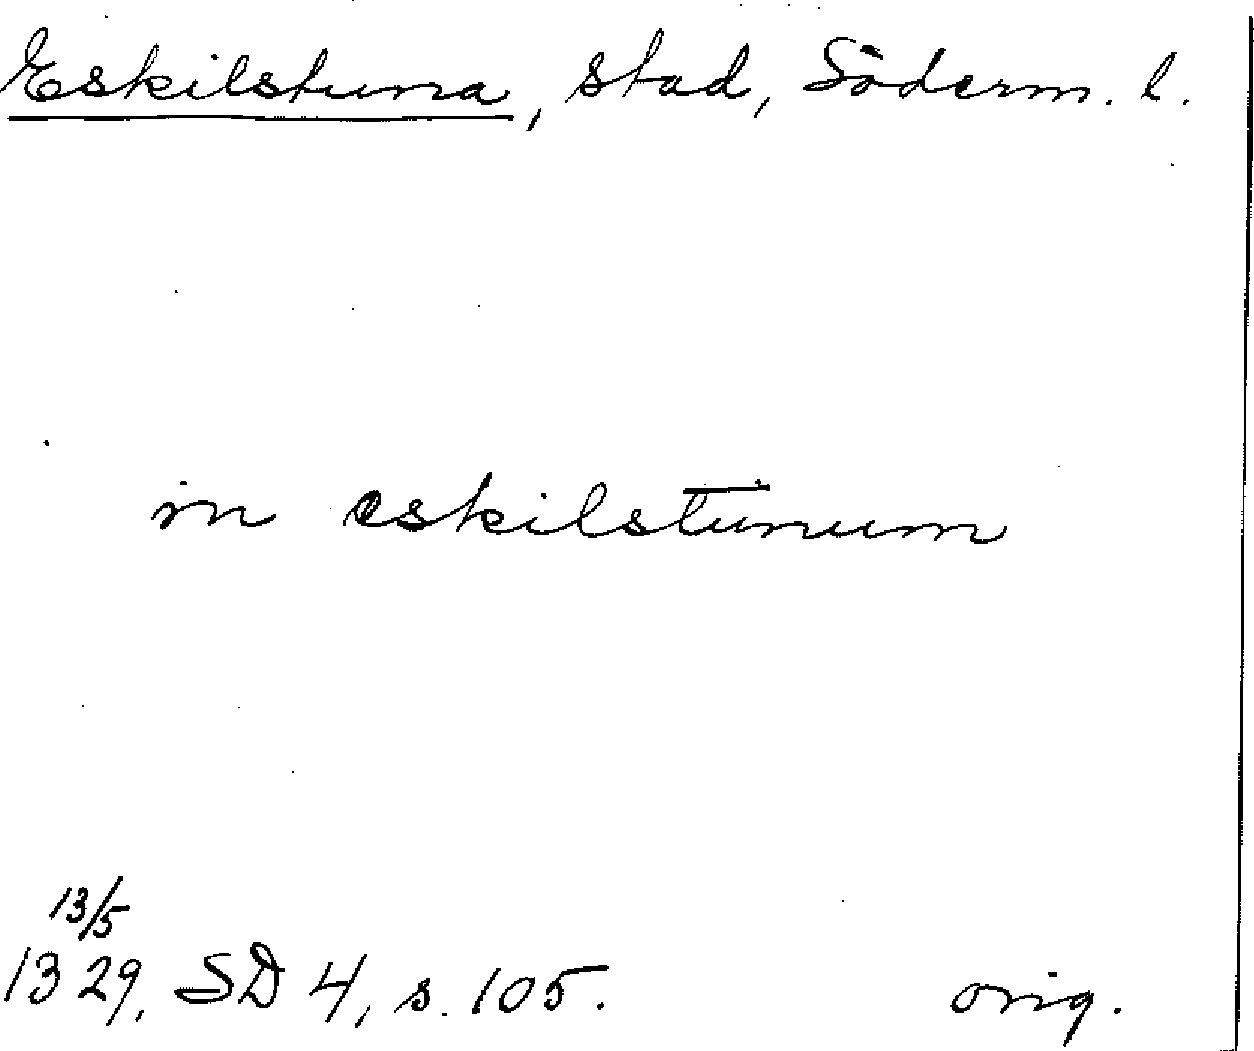 Eskilstuna, stad, Söderm. l.
in eskilstunum
13/5
1329, SD 4, s. 105. orig.